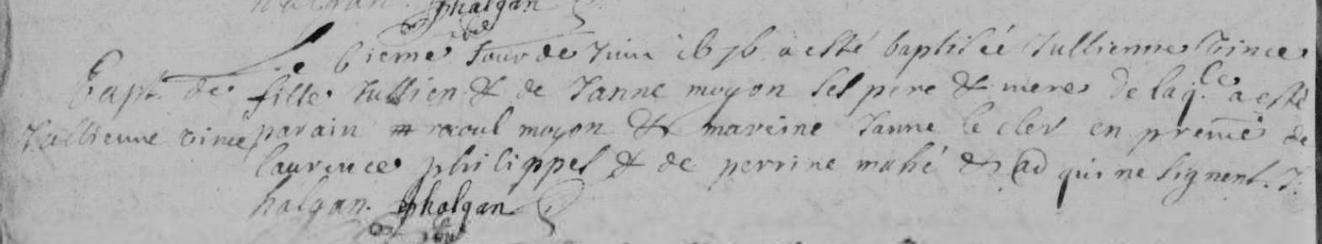 halgan. J halgan
Bapt. de
Jullienne vince
Le 6ieme Jour de Juin 1676 a esté baptisée Jullienne Vince
fille Jullien & de Janne moyon ses pere & mere de laq.le a esté
parain raoul moyon & mareine Janne le cler en presence de
laurence philippes & de perrine mahé & ad qui ne signent. J.
halgan. J halgan